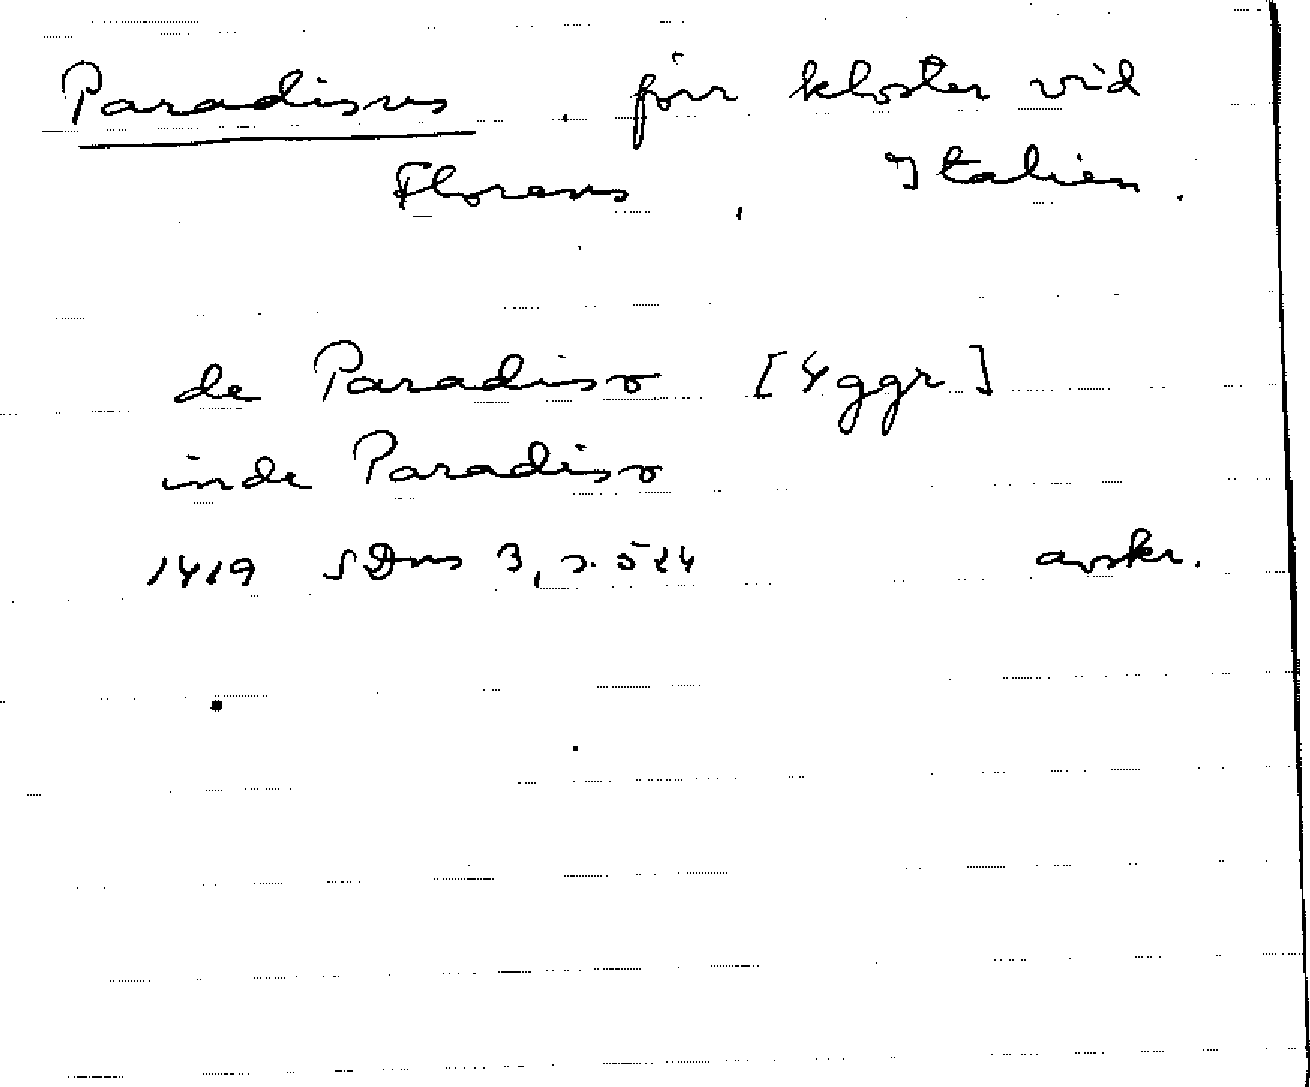 Paradisus, förr kloster vid
Florens, Italien.
de Paradiso [4 ggr]
inde Paradiso
1419 SDns 3, s. 524 avskr.